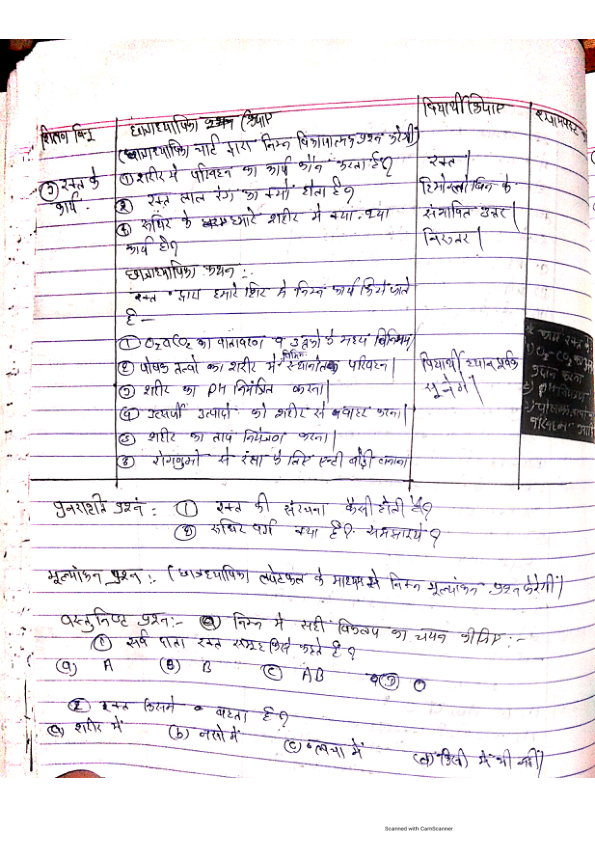 शिक्षण बिन्दु
छात्राध्यापिका क्रियाएँ
विद्यार्थी क्रियाएँ
श्यामपट्ट
(छात्राध्यापिका चार्ट द्वारा निम्न विकासात्मक प्रश्न करेगी)
③ रक्त के
कार्य :
① शरीर में परिवहन का कार्य कौन करता है?
② रक्त लाल रंग का क्यों होता है?
④ रूधिर के हमारे शरीर में क्या-क्या
कार्य है?
रक्त।
हिमोग्लोबिन के
संभावित उत्तर।
निरुत्तर।
छात्राध्यापिका कथन :-
रक्त द्वारा हमारे शरीर में निम्न कार्य किये जाते
है—
① O₂ व CO₂ का वातावरण व ऊतकों के मध्य विनिमय
② पोषक तत्वों का शरीर में विभिन्न स्थानांतक परिवहन।
③ शरीर का PH नियंत्रित करना।
④ उत्सर्जी उत्पादों को शरीर से बाहर करना।
⑤ शरीर का ताप नियंत्रण करना।
⑥ रोगाणुओं से रक्षा के लिए एन्टी बॉडी बनाना
विद्यार्थी ध्यान पूर्वक
सुनेंगे।
O₂ CO₂ का
PH
पुनरावृति प्रश्न : ① रक्त की संरचना कैसी होती है?
② रूधिर वर्ग क्या है? समझाइये?
मूल्यांकन प्रश्न :- (छात्राध्यापिका लपेटफलक के माध्यम से निम्न मूल्यांकन प्रश्न करेगी)
वस्तुनिष्ट प्रश्न:- निम्न में सही विकल्प का चयन कीजिए :-
① सर्व दाता रक्त समूह किसे कहते है?
(a) A (B) B (C) AB (D) O
② रक्त किसमें बहता है?
(a) शरीर में (b) नसो में (c) त्वचा में (d) किसी में भी नहीं
Scanned with CamScanner